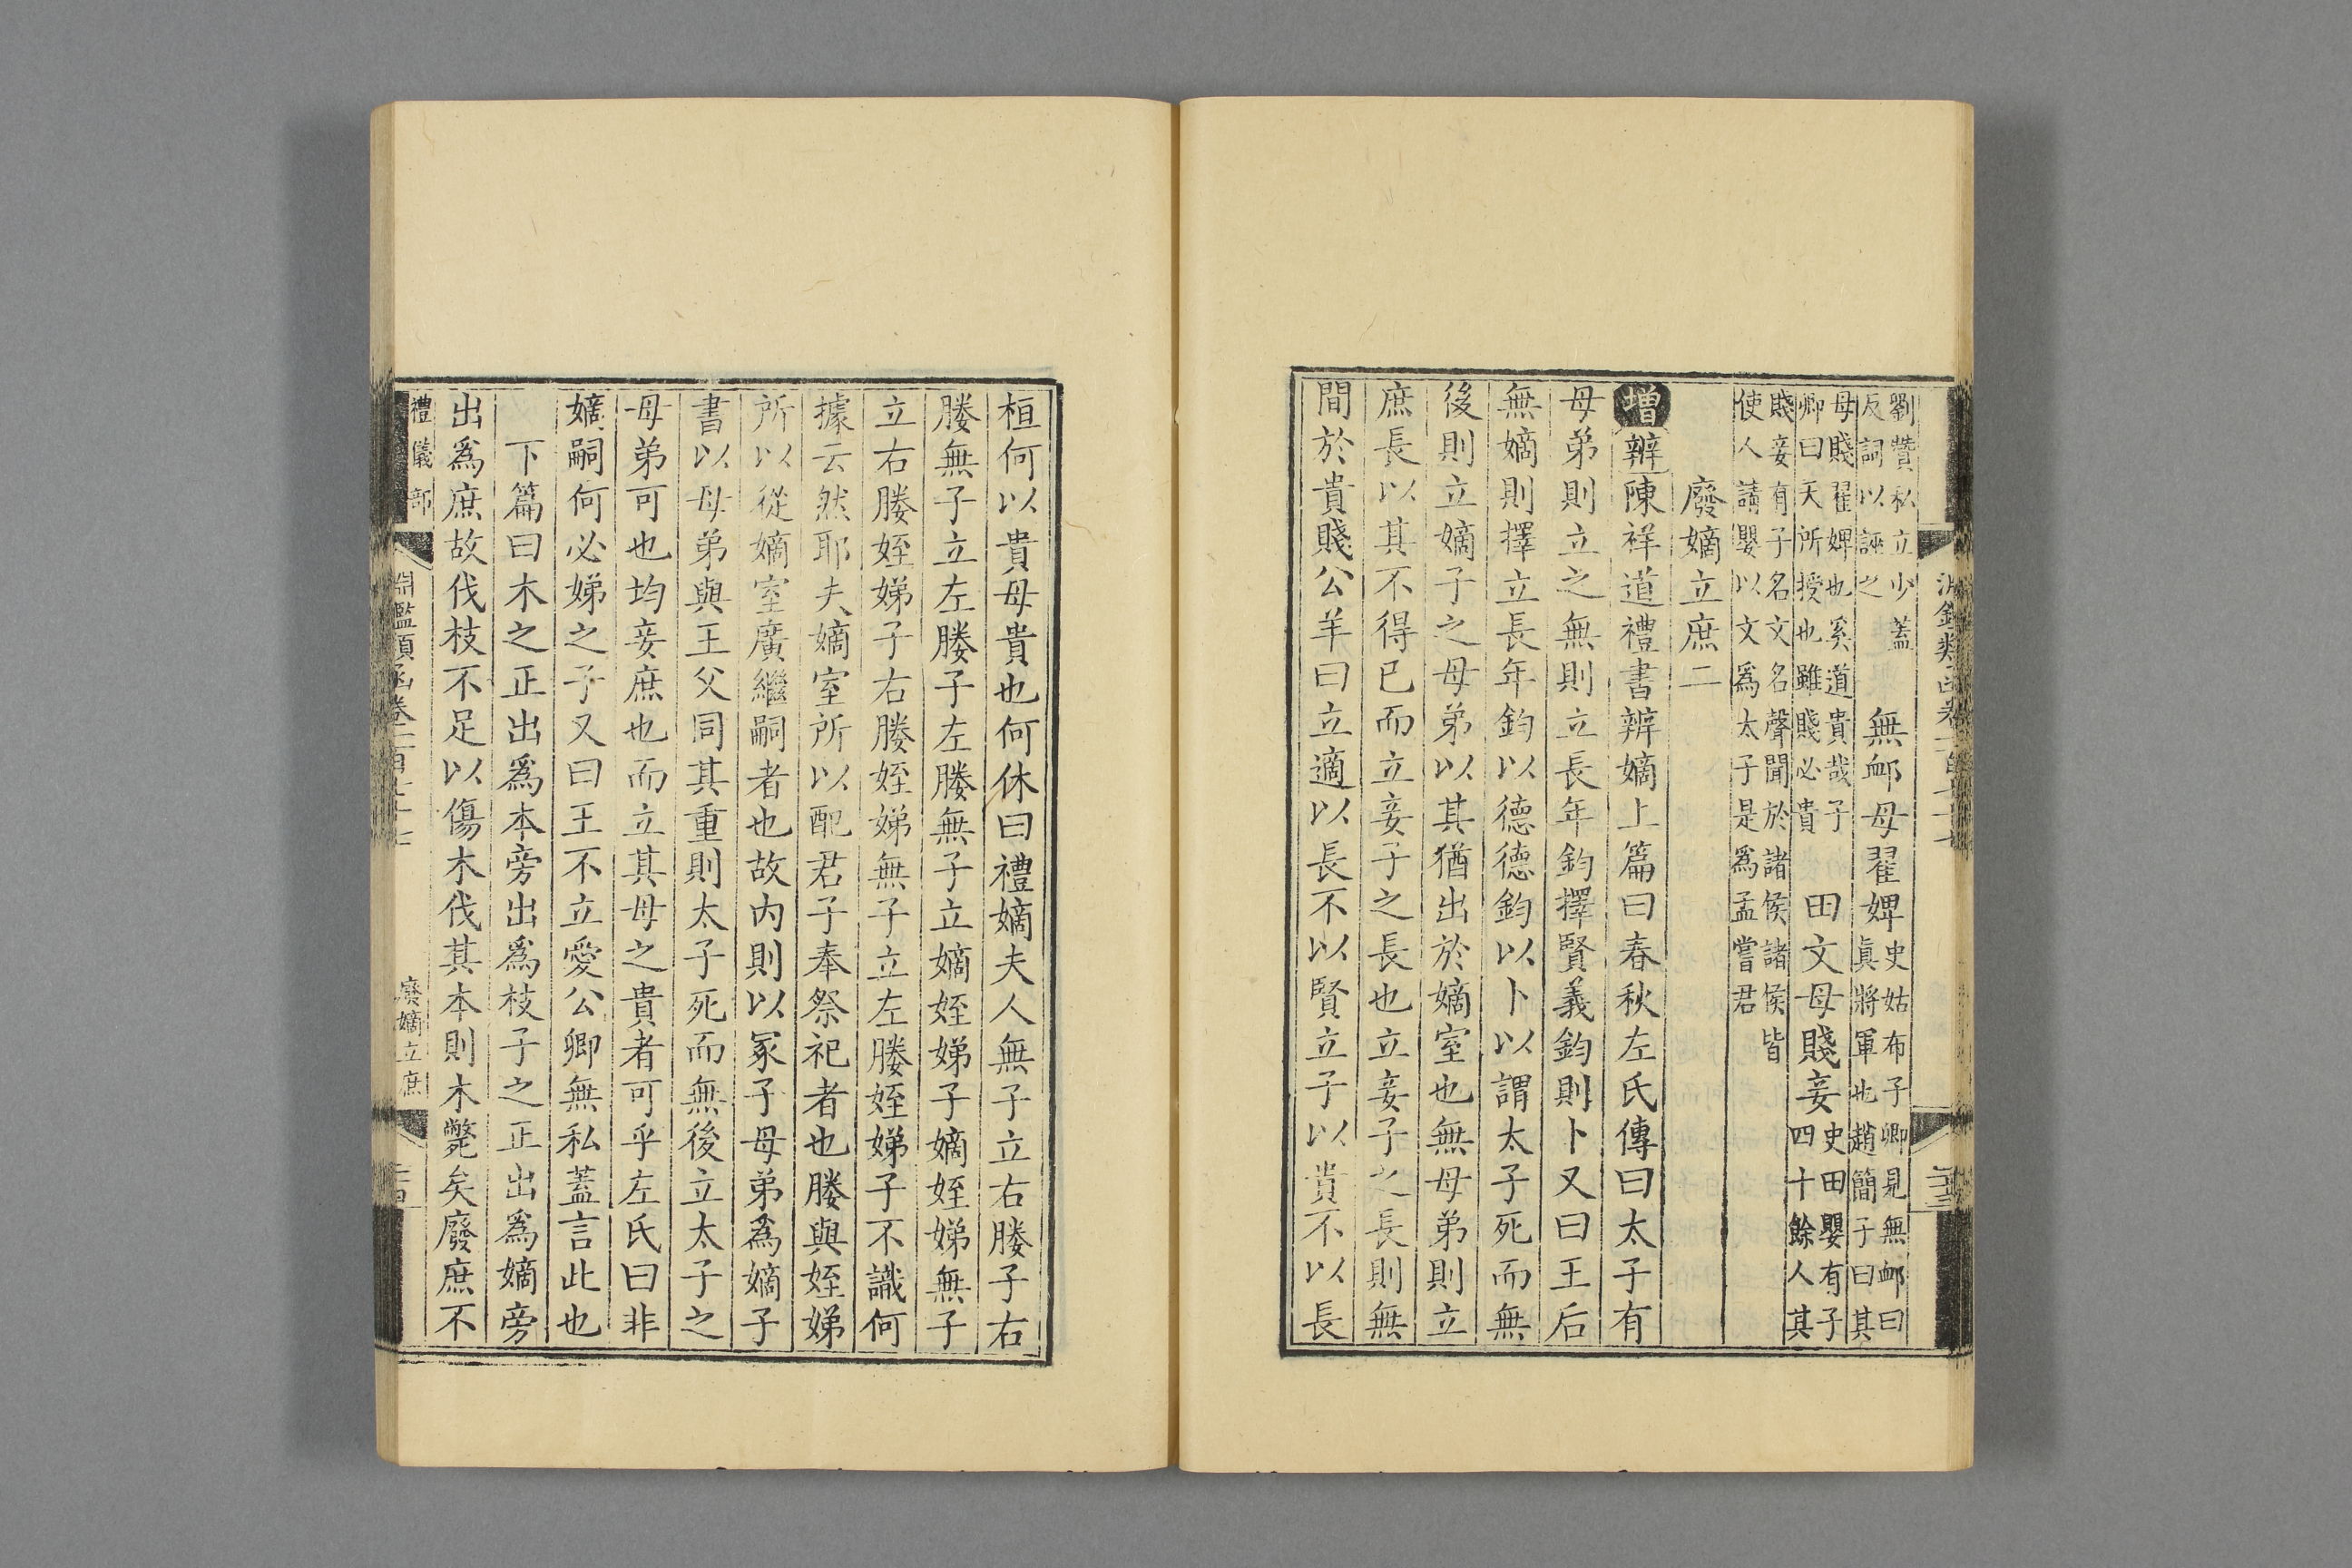 劉贊私立少蓋
反詞以誣之
無䘏母翟婢
史姑布子卿見無䘏曰
眞將軍也趙簡子曰其
母賤翟婢也奚道貴哉子
卿曰天所授也雖賤必貴
田文母賤妾
史田嬰有子
四十餘人其
賤妾有子名文名聲聞於諸侯諸侯皆
使人請嬰以文爲太子是爲孟嘗君
廢嫡立庶二
增辨陳祥道禮書辨嫡上篇曰春秋左氏傳曰太子有
母弟則立之無則立長年鈞擇賢義鈞則卜又曰王后
無嫡則擇立長年鈞以德德鈞以卜以謂太子死而無
後則立嫡子之母弟以其猶出於嫡室也無母弟則立
庶長以其不得已而立妾子之長也立妾子之長則無
間於貴賤公羊曰立適以長不以賢立子以貴不以長
桓何以貴母貴也何休曰禮嫡夫人無子立右媵子右
媵無子立左媵子左媵無子立嫡姪娣子嫡姪娣無子
立右媵姪娣子右媵姪娣無子立左媵姪娣子不識何
據云然耶夫嫡室所以配君子奉祭祀者也媵與姪娣
所以從嫡室廣繼嗣者也故内則以冢子母弟爲嫡子
書以母弟與王父同其重則太子死而無後立太子之
母弟可也均妾庶也而立其母之貴者可乎左氏曰非
嫡嗣何必娣之子又曰王不立愛公卿無私蓋言此也
下篇曰木之正出爲本旁出爲枝子之正出爲嫡旁
出爲庶故伐枝不足以傷木伐其本則木斃矣廢庶不
禮儀部
淵鑑類函卷一百七十七
廢嫡立庶
二十四